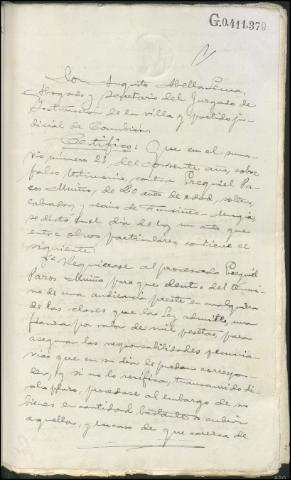 G.0.411.379
Don Augusto Abella
Abogado y Secretario del Juzgado de
Instrucción de la villa y partido ju-
dicial de Corcubión.
Certifico: Que en el suma-
rio número 23 del corriente año, sobre
falso testimonio, contra Ezequiel Pa-
zos Muíños, de 20 años de edad, solte-
ro, y vecino de Muxía,
se dictó en el día de hoy un auto que
entre otros particulares contiene el
siguiente:
Se requiérase al procesado Ezequiel
Pazos Muíño para que dentro del térmi-
no de una audiencia preste en cualquiera
de las clases que la Ley admite, una
fianza por valor de mil pesetas, para
asegurar las responsabilidades pecunia-
rias que en su día le puedan correspon-
der, y si no lo verifica, transcurrido di-
cho plazo, procédase al embargo de sus
bienes en cantidad bastante a cubrir
aquellas, y en caso de que carezca de